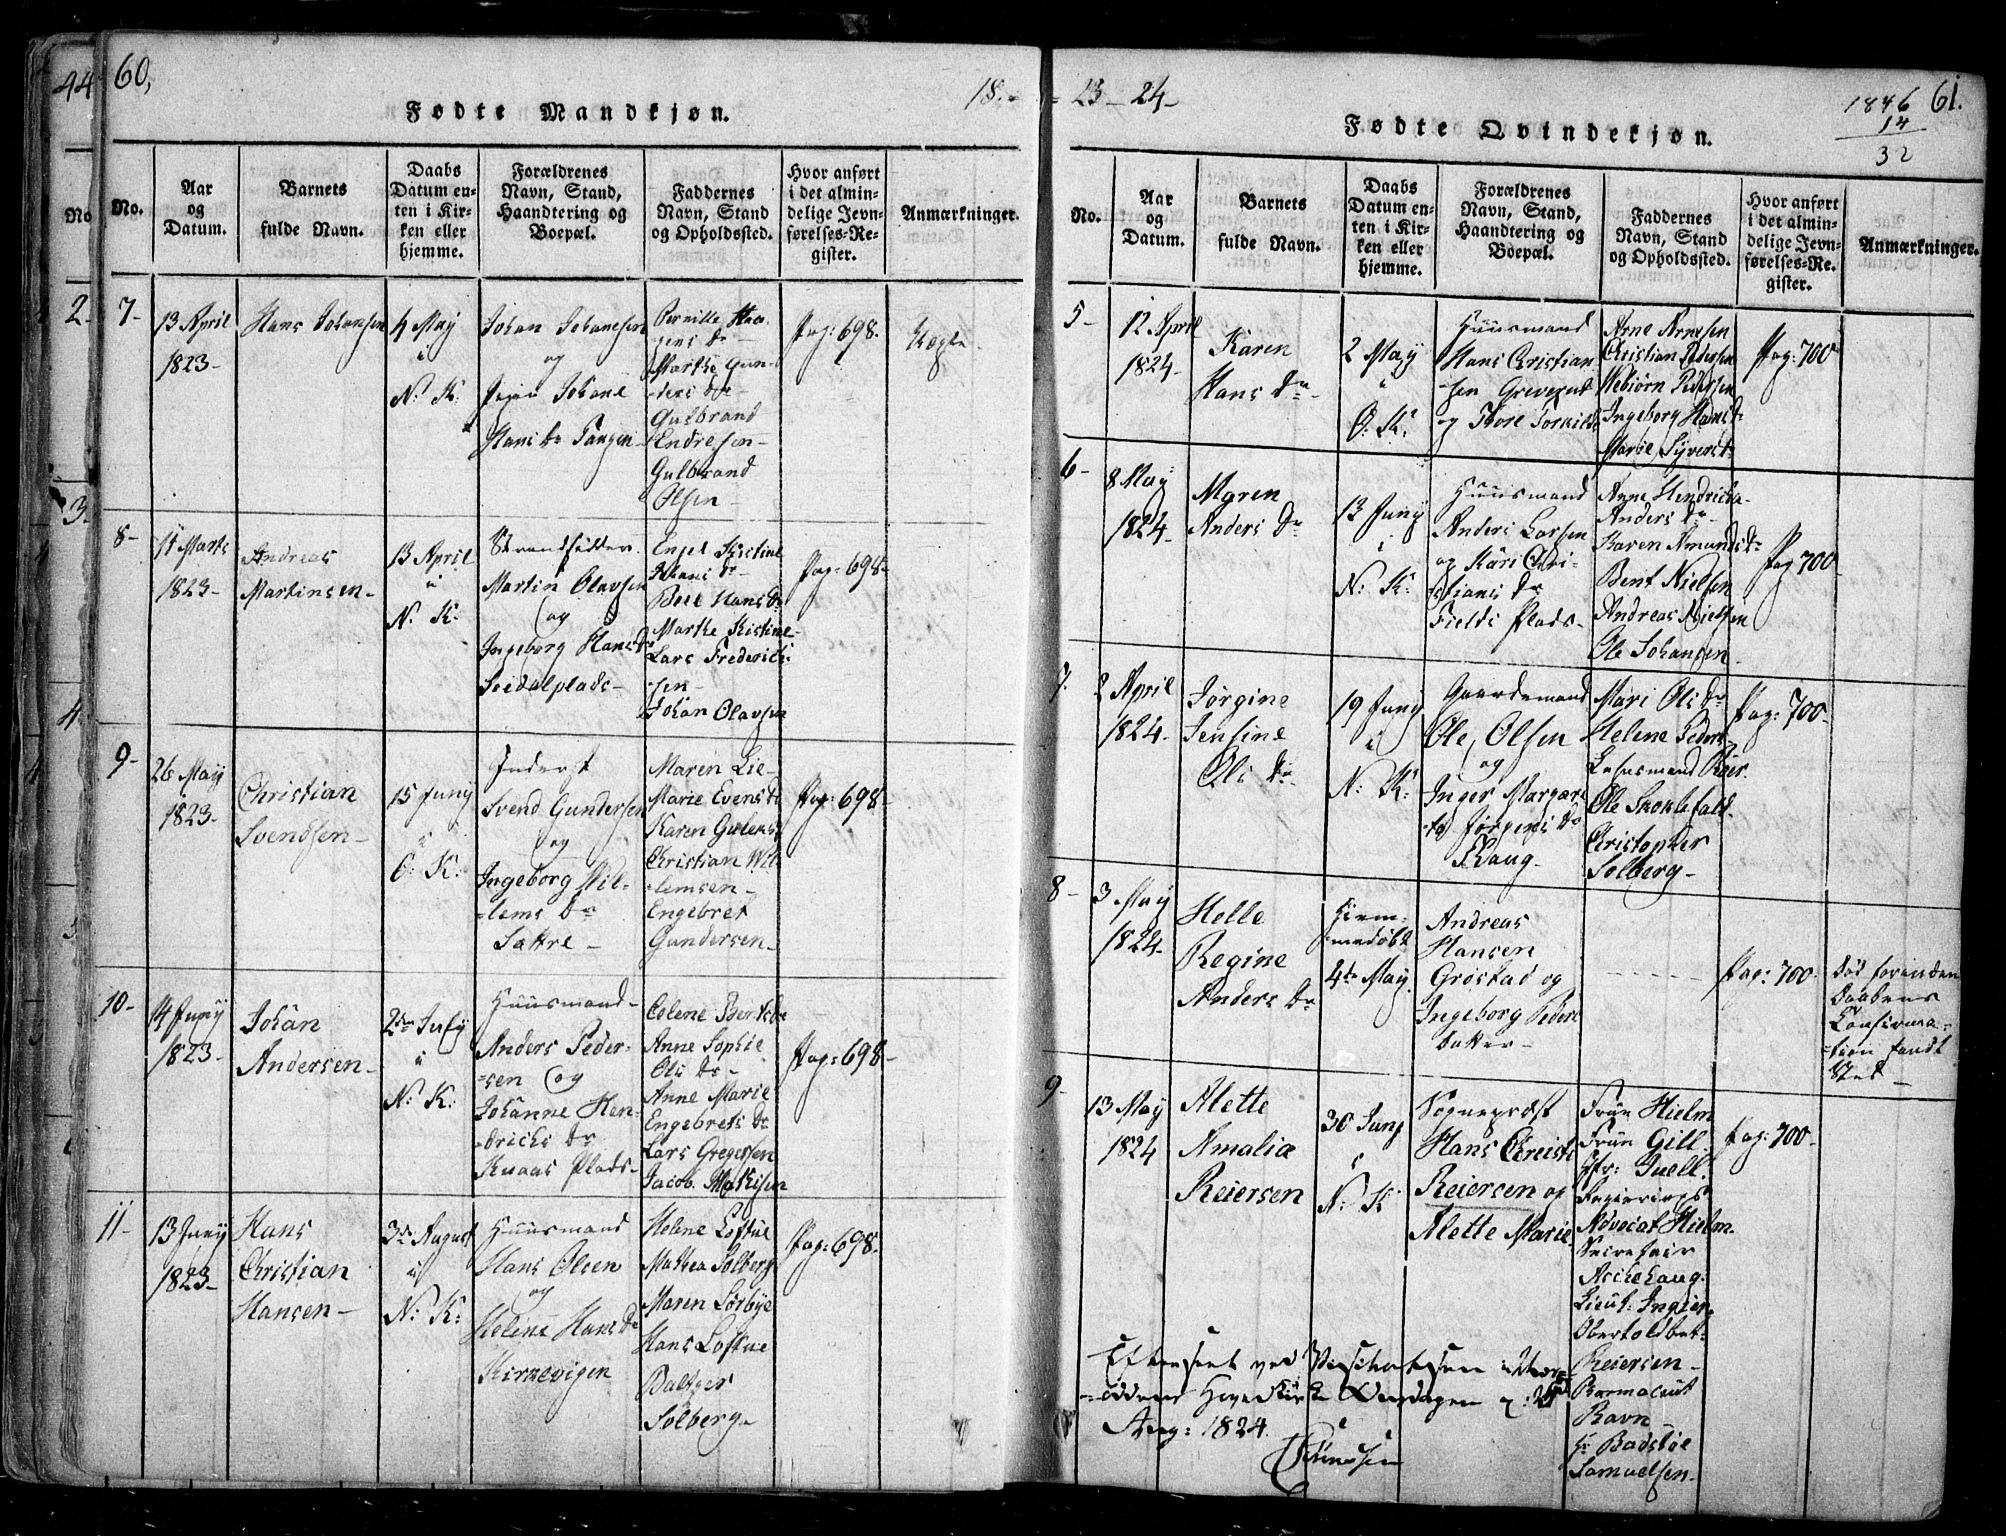 44
60,
18
Fødte Mandkjøn.
No.
Aar
og
Datum.
Barnets
fulde Navn.
Daabs
Datum en-
ten i Kir-
ken eller
hjemme.
Forældrenes
Navn, Stand,
Haandtering og
Boepæl.
Faddernes
Navn, Stand
og Opholdssted.
Hvor anført
i det almin-
delige Jevn-
førelses-Re-
gister.
Anmærkninger.
7-
13 April
1823-
Hans Johansen
4 May
i
N. K:
Johan Johanesen
og
Johane
Hans Dr Tangen
Pernille Haa-
gens Dr
Marthe Gun-
ders Dr
Gulbrand
Endresen-
Gulbrand
Olsen-
Pag: 698.
8-
11 Marts
1823-
Andreas
Martinsen-
13 April
i
N. K:
Strandsidder
Martin Olavsen
og
Ingeborg Hans Dr
Engel Kistine
Hans Dr
Hans Dr
Marthe Kistine-
Lars Frederich-
sen-
Johan Olavsen
Pag: 698-
9-
26 May
1823-
Christian
Svendsen-
15 Juny
i
O: K:
Inderst
Svend Gundersen
og
Ingeborg Wil-
-lems Dr
Sattre-
Maren Lie-
Marie Evens Dr
Karen
Christian Wil-
-lemsen-
Engebret
Gundersen-
Pag: 698-
10-
14 Juny
1823-
Johan
Andersen-
July
i
N: K:
Huusmand-
Anders Peder-
-sen og
Johanne Hen-
-drichs Dr
Knaas Plads-
Anne Sophie
Ols Dr-
Anne Marie
Engebrets Dr
Lars Gregersen
Jacob Mathisen
Pag: 698-
11-
13 Juny
1823-
Hans
Christian
Hansen-
3die August
i
N: K:
Huusmand
Hans Olsen
og
Helene Hans Dr
Kirkevigen
Helene Loftue
Mathea Solberg
Maren Sørbye
Hans Loftue
Baltzer
Solberg-
Pag: 698-
23-24-
1846
14
32
61.
Fødte Qvindekjøn.
No.
Aar
og
Datum.
Barnets
fulde Navn.
Daabs
Datum en-
ten i Kir-
ken eller
hjemme.
Forældrenes
Navn, Stand,
Haandtering og
Boepæl.
Faddernes
Navn, Stand
og Opholdssted.
Hvor anført
i det almin-
delige Jevn-
førelses-Re-
gister.
Anmærkninger.
5-
12 April
1824-
Karen
Hans Dr-
2 May
O: K:
Huusmand
Hans Christian
-sen
og Thore
Arne Arnesen
Christian Pedersen
Pedersen
Ingeborg Hans Dr
Marie Syvers Dr
Pag: 700-
6-
8 May
1824-
Maren
Anders Dr
13 Juny
i
N: K:
Huusmand
Anders Larsen
og Kari Chri-
-stians Dr
Fields Plads-
Anne Hendricha
Anders Dr-
Karen Amunds Dr
Bent Nielsen
Andreas Nielsen
Ole Johansen
Pag 700-
7.
2 April
1824-
Jørgine
Jensine
Ols Dr-
19 Juny
i
N: K:
Gaardemand
Ole Olsen
og
Inger Margare
-the Jørgens Dr
Mari Ols Dr
Helene Peders-
Christopher
Solberg-
Pag: 700-
8-
3 May
1824-
Helle
Regine
Anders Dr
Hiem-
4de May
Andreas
Hansen
Grøstad og
Ingeborg Peders
datter-
Pag: 700-
Død forinden
Daabens
Confirma-
-tion fandt
Sted-
9-
13 May
1824
Alette
Amalia
Reiersen
30 Juny
i
N: K
Sogneprest
Hans Christi
Reiersen og
Alette Marie
Frue Hielm
Frue Gill
Jfr: Juell.
Regierings
Advocat Hielm-
Secretair
Aschehoug-
Lieut: Ingier-
Reiersen-
Ravn-
Samuelsen-
Pag: 700-
Efterseet ved Visitatsen i
Hoved Kirke Onsdagen
Aug: 1824.
Sørenssen